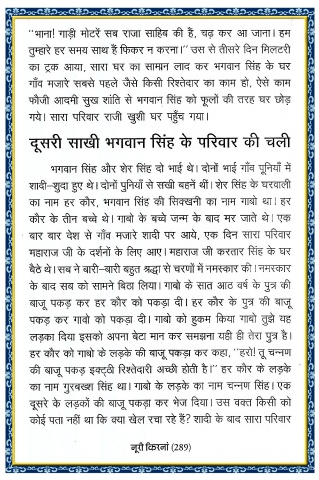 "भाना! गाड़ी मोटरें सब राजा साहिब की हैं, चड़ कर आ जाना। हम
तुम्हारे हर समय साथ हैं फिकर न करना।" उस से तीसरे दिन मिलटरी
का ट्रक आया, सारा घर का सामान लाद कर भगवान सिंह के घर
गाँव मजारे सबसे पहले जैसे किसी रिश्तेदार का काम हो, ऐसे काम
फौजी आदमी सुख शांति से भगवान सिंह को फूलों की तरह घर छोड़
गये। सारा परिवार राजी खुशी घर पहुँच गया।
दूसरी साखी भगवान सिंह के परिवार की चली
भगवान सिंह और शेर सिंह दो भाई थे। दोनों भाई गाँव पूनियाँ में
शादी-शुदा हुए थे। दोनों पुनियाँ से सखी बहनें थीं। शेर सिंह के घरवाली
का नाम हर कौर, भगवान सिंह की सिक्खनी का नाम गाबो था। हर
कौर के तीन बच्चे थे। गाबो के बच्चे जन्म के बाद मर जाते थे। एक
बार बार देश से गाँव मजारे शादी पर आये, एक दिन सारा परिवार
महाराज जी के दर्शनों के लिए आए। महाराज जी करतार सिंह के घर
बैठे थे। सब ने बारी-बारी बहुत श्रद्धा से चरणों में नमस्कार की। नमस्कार
के बाद सब को सामने बिठा लिया। गाबो के सात आठ वर्ष के पुत्र की
बाजू पकड़ कर हर कौर को पकड़ा दी। हर कौर के पुत्र की बाजू
पकड़ कर गावो को पकड़ा दी। गाबो को हुकम किया गाबो तुझे यह
लड़का दिया इसको अपना बेटा मान कर समझना यही ही तेरा पुत्र है।
हर कौर को गाबो के लड़के की बाजू पकड़ा कर कहा, "हरो! तू चन्नण
की बाजू पकड़ इकट्ठी रिश्तेदारी अच्छी होती है।" हर कौर के लड़के
का नाम गुरबख्श सिंह था। गाबो के लड़के का नाम चन्नण सिंह। एक
दूसरे के लड़कों की बाजू पकड़ा कर भेज दिया। उस वक्त किसी को
कोई पता नहीं था कि क्या खेल रचा रहे हैं? शादी के बाद सारा परिवार
नूरी किरनां (289)